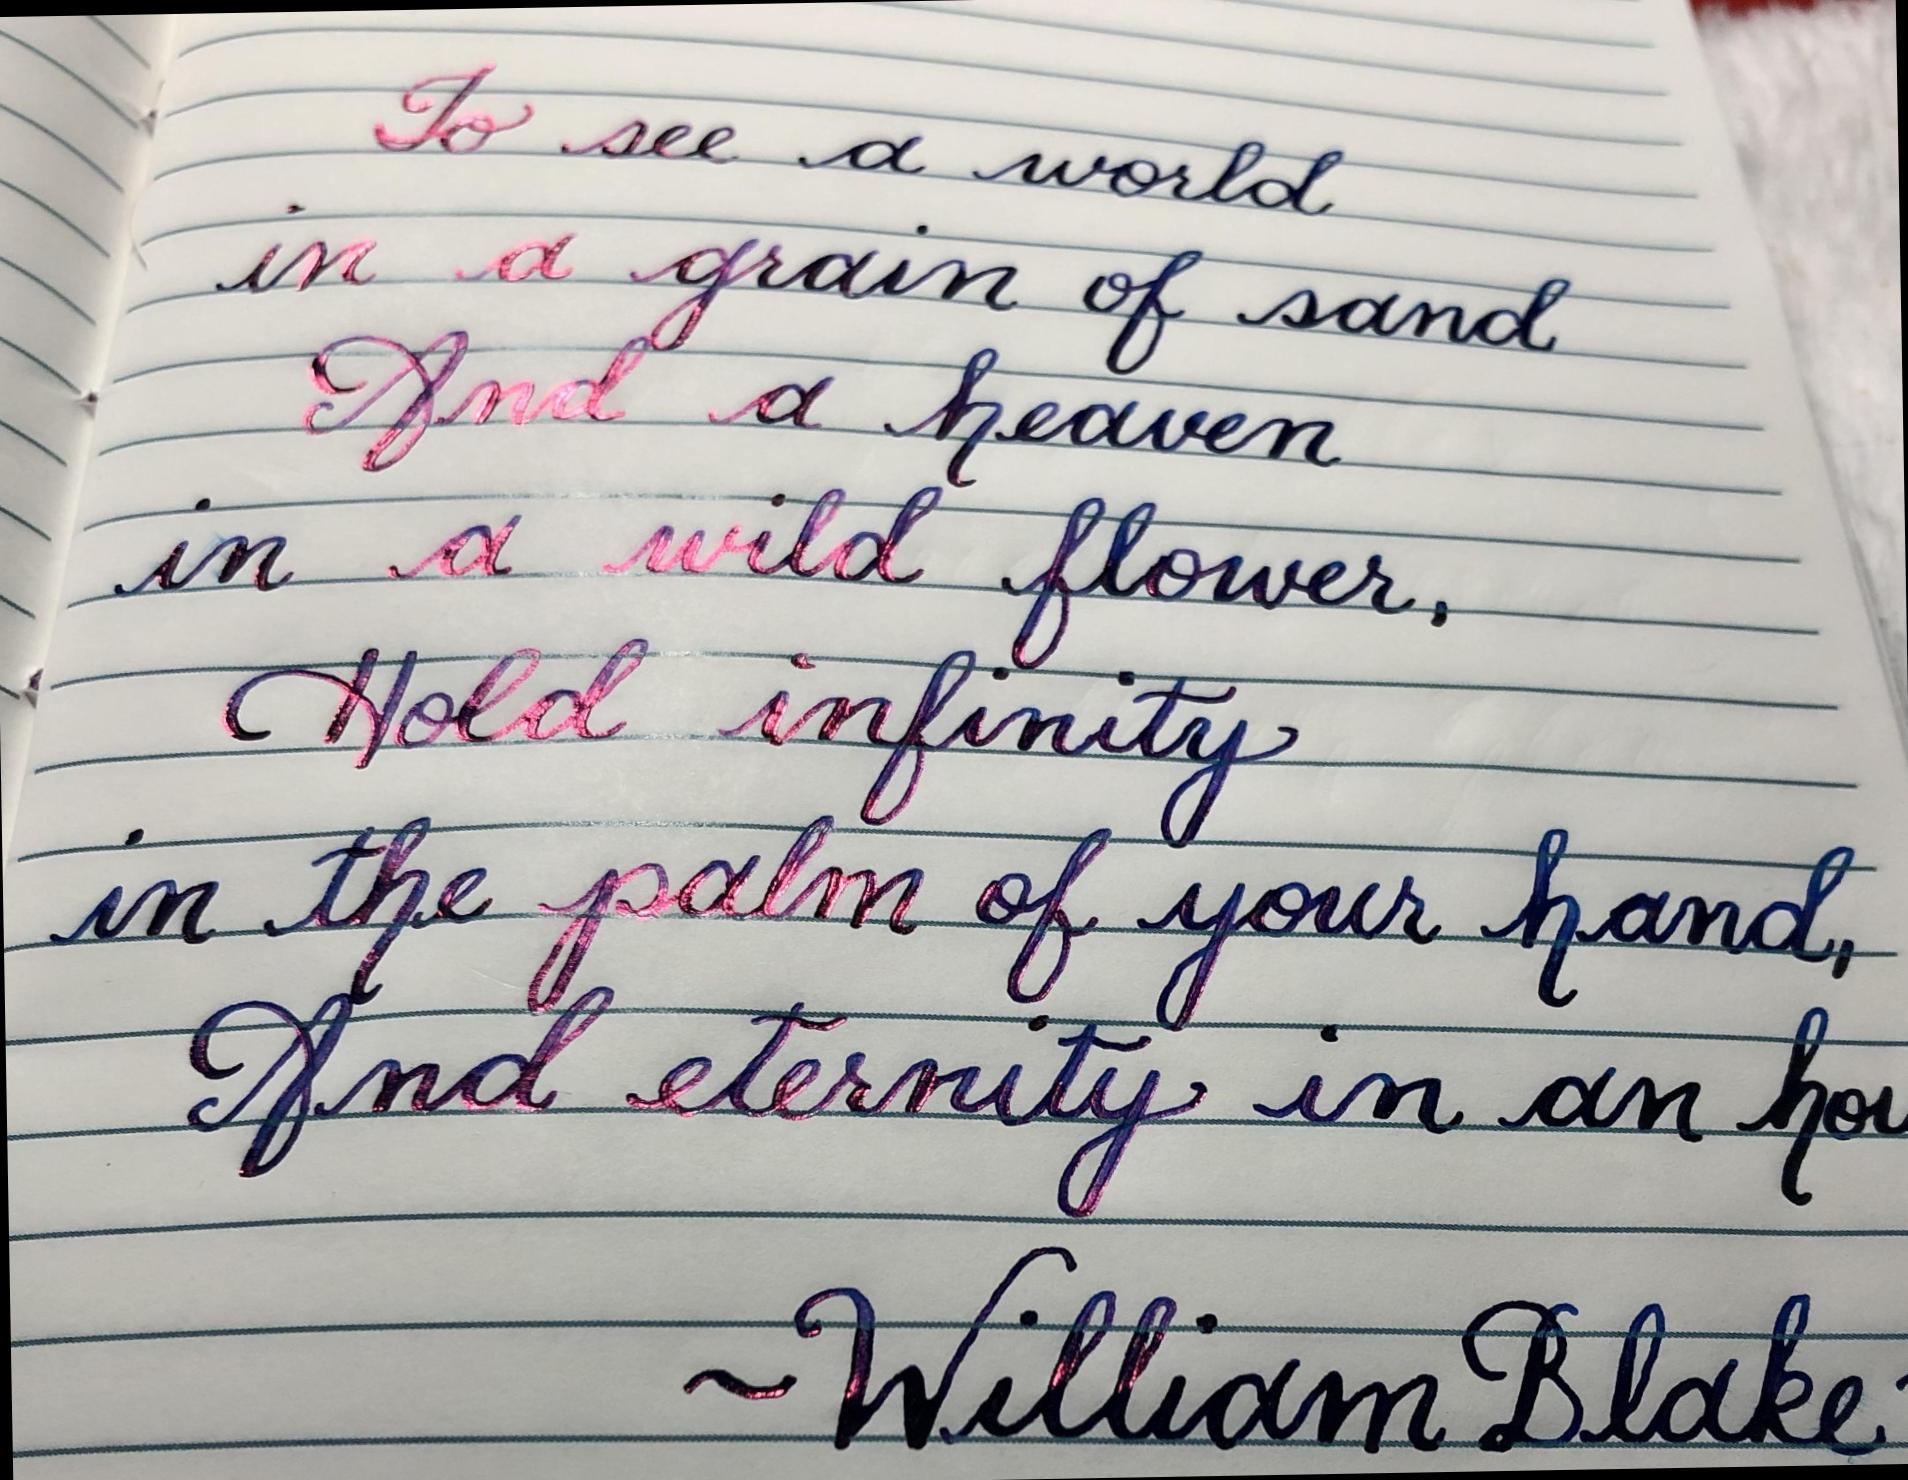 To see a world
in a grain of sand
And a heaven
in a wild flower,
Hold infinity
in the palm of your hand,
And eternity in an hou
~William Blake~